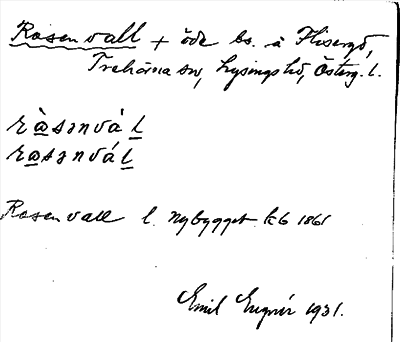 Rosenvall + öde bs. å Flisergd,
Trehörna sn, Lysings hd, Österg. l.
rὰsənvàl
rasənvál
Rosenvall l. nybygget kb 1861
Emil Engnér 1931.